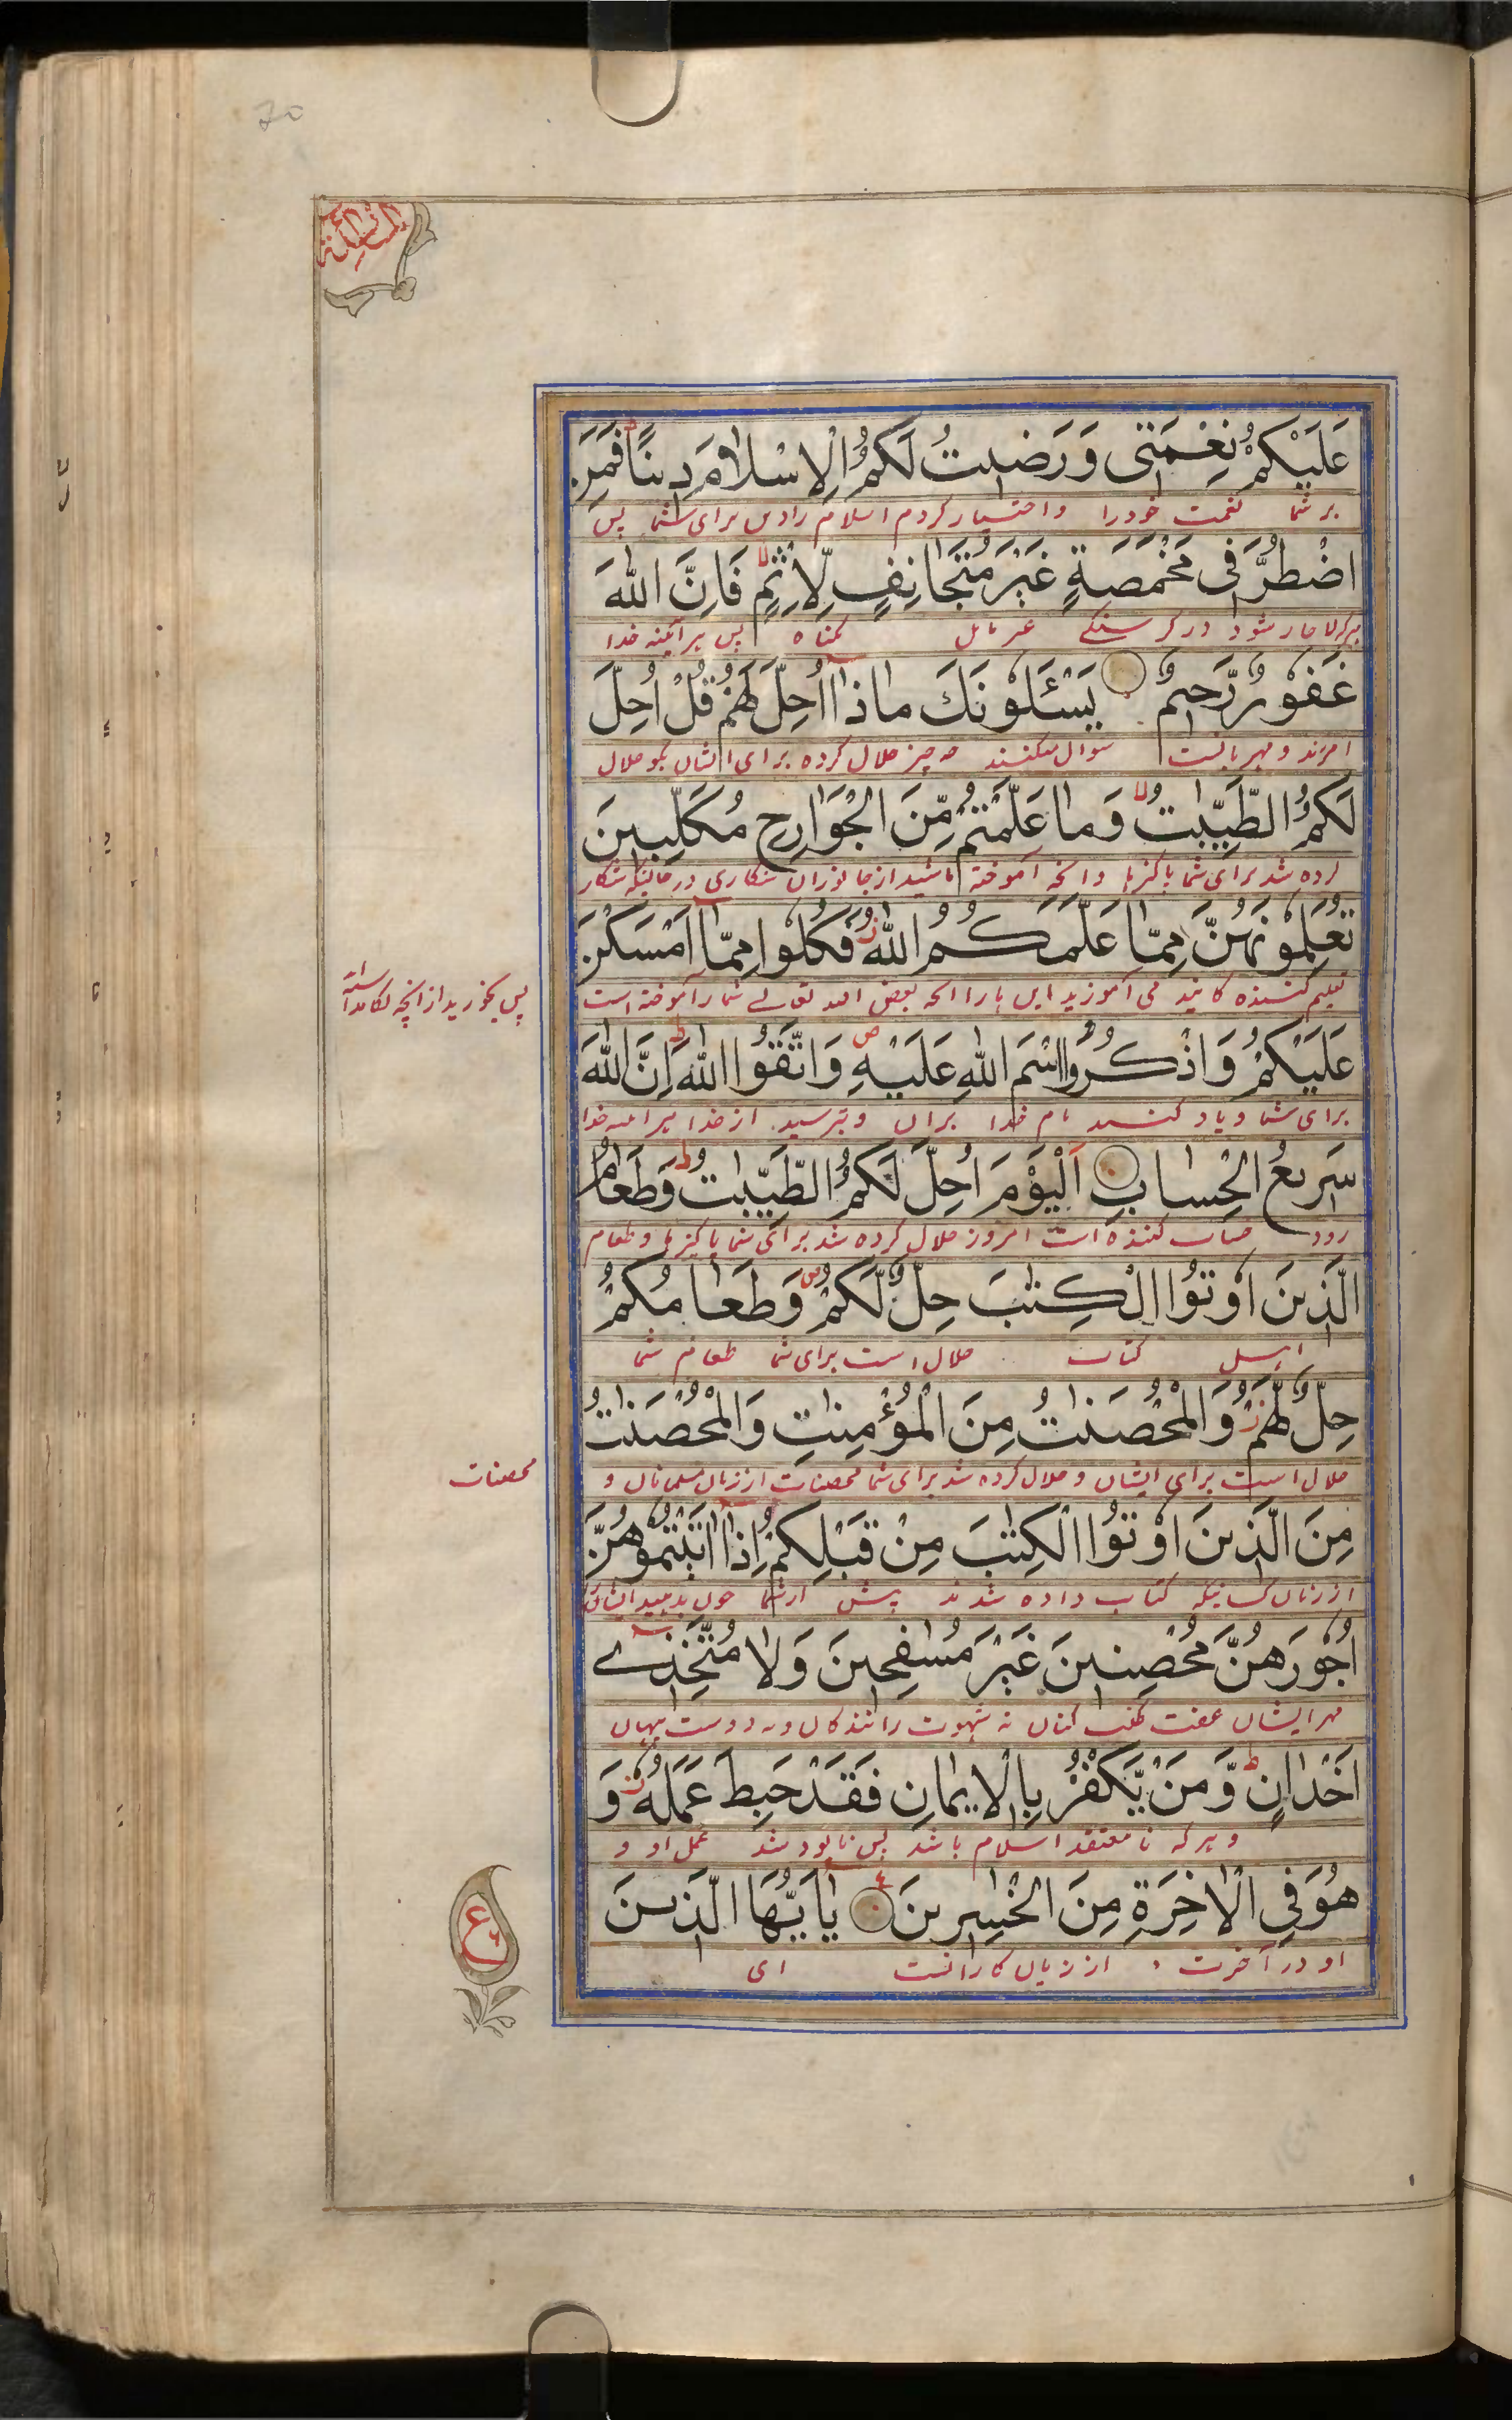 70
المائدة
عَلَيْكُمْ نِعْمَتِى وَرَضِيتُ لَكُمُ الْاِسْلَامَ دِينًا ط فَمَنِ
بر شما نعمت خود را و اختیار کردم اسلام را دین برای شما پس
اضْطُرَّ فِى مَخْمَصَةٍ غَيْرَ مُتَجَانِفٍ لِّاِثْمٍ لا فَاِنَّ اللهَ
هرکه لاچار شود در گرسنگے غیر مایل گناه پس هر آئینه خدا
غَفُوْرٌ رَّحِيمٌ يَسْئَلُوْنَكَ مَاذَا اُحِلَّ لَهُمْ قُلْ اُحِلَّ
سوال میکنند چه چیز حلال کرده برای ایشان بگو حلال
لَكُمُ الطَّيِّبٰتُ لا وَمَا عَلَّمْتُمْ مِّنَ الْجَوَارِحِ مُكَلِّبِينَ
کرده شد برای شما پاکیزها و آنچه آموخته باشید از جانوران شکاری در حالیکه شکار
تُعَلِّمُوْنَهُنَّ مِمَّا عَلَّمَكُمُ اللهُ ز فَكُلُوْا مِمَّا اَمْسَكْنَ
تعلیم کننده کانید می آموزید این ها را آنچه بعض الله تعالے شما را آموخته است
پس بخورید از آنچه نگاه داشته
عَلَيْكُمْ وَاذْكُرُوا اسْمَ اللهِ عَلَيْهِ ص وَاتَّقُوا اللهَ ط اِنَّ اللهَ
برای شما و یاد کنید نام خدا بران و بترسید از خدا هر آئینه خدا
سَرِيعُ الْحِسَابِ اَلْيَوْمَ اُحِلَّ لَكُمُ الطَّيِّبٰتُ ط وَطَعَامُ
زود حساب کننده است امروز حلال کرده شد برای شما پاکیزها و طعام
الَّذِينَ اُوْتُوا الْكِتٰبَ حِلٌّ لَّكُمْ ص وَطَعَامُكُمْ
اهل کتاب حلال است برای شما طعام شما
حِلٌّ لَّهُمْ ز وَالْمُحْصَنٰتُ مِنَ الْمُؤْمِنٰتِ وَالْمُحْصَنٰتُ
حلال است برای ایشان و حلال کرده شد برای شما محصنات از زنان مسلمانان و
محصنات
مِنَ الَّذِينَ اُوْتُوا الْكِتٰبَ مِنْ قَبْلِكُمْ اِذَا اٰتَيْتُمُوْهُنَّ
از زنان کسانیکه کتاب داده شدند پیش از شما چون بدهید ایشانرا
اُجُوْرَهُنَّ مُحْصِنِينَ غَيْرَ مُسٰفِحِينَ وَلَا مُتَّخِذِے
مهر ایشان عفت طلب کنان نه شهوت رانندگان و نه دوست پنهان
اَخْدَانٍ ط وَّمَنْ يَّكْفُرْ بِالْاِيمَانِ فَقَدْ حَبِطَ عَمَلُهُ ز وَ
و هر که نا معتقد اسلام باشد پس نابود شد عمل او و
هُوَ فِى الْاٰخِرَةِ مِنَ الْخٰسِرِينَ ع يٰاَيُّهَا الَّذِينَ
او در آخرت از زیان کارانست ای
ع